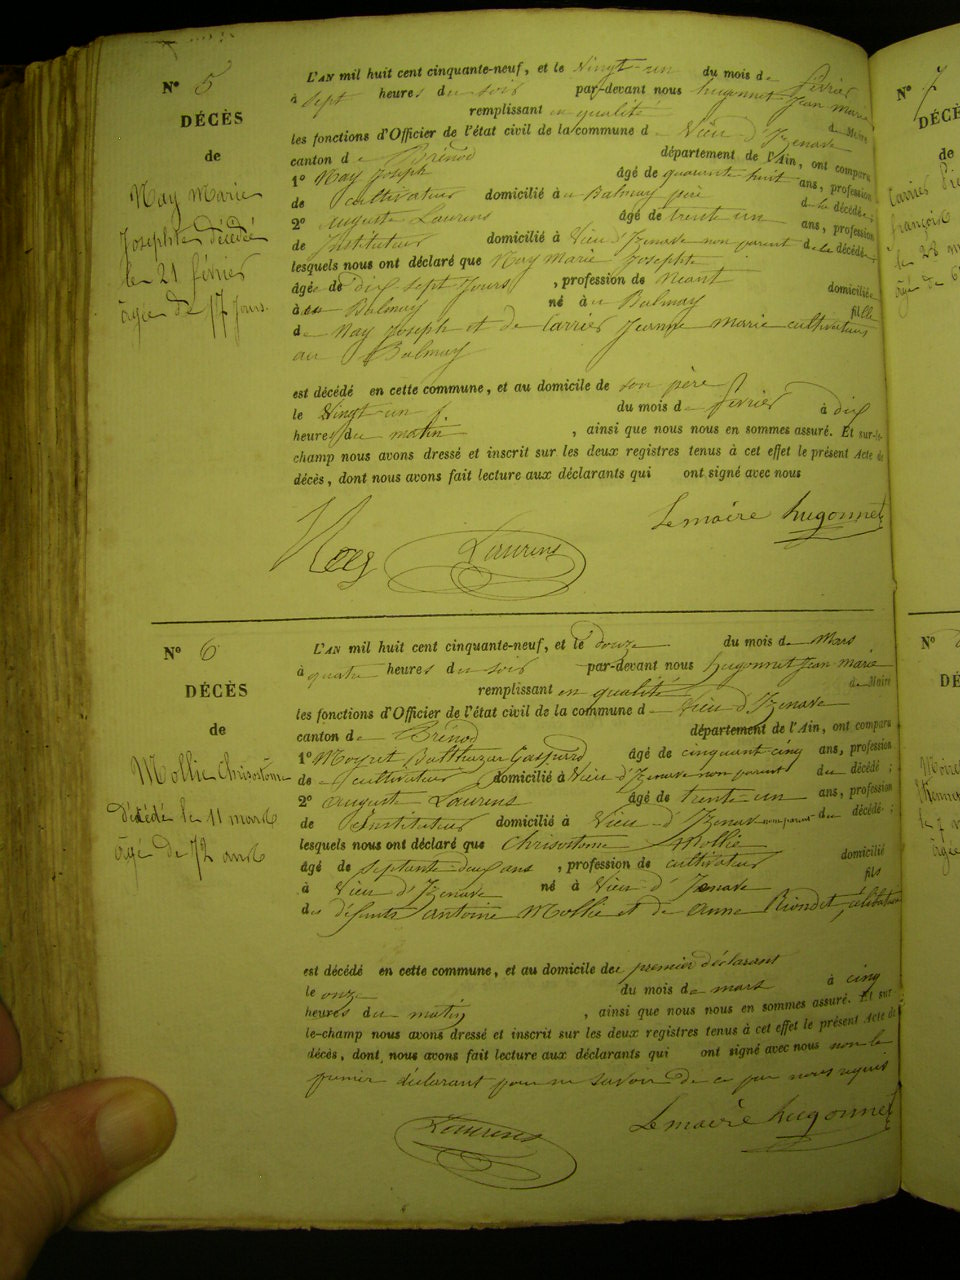 N° 5
DÉCÈS
de
Nay Marie
Josephte décédé
le 21 février
âgée de 17 Jours.
L'AN mil huit cent cinquante-neuf, et le Vingt-un du mois de février
à sept heures du soir par-devant nous hugonnet Jean marie
remplissant en qualité de Maire
les fonctions d'Officier de l'état civil de la commune d Vieu d'Izenave
canton de Brénod département de l'Ain, ont comparu
1° Nay Joseph âgé de quarante huit ans, profession
de cultivateur domicilié au Balmay père de la décédée;
2° Auguste Laurens âgé de trente un ans, profession
de Instituteur domicilié à Vieu d'Izenave non parent de la décédée
lesquels nous ont déclaré que Nay Marie Josephte
âgée de dix sept Jours, profession de Néant domiciliée
à au Balmay né à au Balmay fille
de Nay Joseph et de Carrier Jeanne Marie cultivateurs
au Balmay
est décédé en cette commune, et au domicile de son père
le Vingt-un du mois de février à dix
heures du matin, ainsi que nous nous en sommes assuré. Et sur-le-
champ nous avons dressé et inscrit sur les deux registres tenus à cet effet le présent Acte de
décès, dont nous avons fait lecture aux déclarants qui ont signé avec nous
Le maire hugonnet
Nay Laurens
N° 6
DÉCÈS
de
Mollie Chrisostome
Décédé le 11 mars
âgé de 72 ans
L'AN mil huit cent cinquante-neuf, et le Douze du mois de Mars
à quatre heures du soir par-devant nous hugonnet Jean marie
remplissant en qualité de Maire
les fonctions d'Officier de l'état civil de la commune d Vieu d'Izenave
canton de Brénod département de l'Ain, ont comparu
1° Moyret Balthazar Gaspard âgé de cinquant-cinq ans, profession
de cultivateur domicilié à Vieu d'Izenave non parent du décédé;
2° Auguste Laurens âgé de trente-un ans, profession
de Instituteur domicilié à Vieu d'Izenave non parent du décédé;
lesquels nous ont déclaré que Chrisostome Mollie
âgé de septante deux ans, profession de cultivateur domicilié
à Vieu d'Izenave né à Vieu d'Izenave fils
des défunts antoine Mollie et de anne Riondet, célibataire
est décédé en cette commune, et au domicile du premier déclarant
le onze du mois de mars à cinq
heures du matin, ainsi que nous nous en sommes assuré. Et sur
le-champ nous avons dressé et inscrit sur les deux registres tenus à cet effet le présent Acte de
décès, dont nous avons fait lecture aux déclarants qui ont signé avec nous non le
premier déclarant pour ne savoir de ce par nous requis
Laurens Le maire hugonnet
N° 7
DÉCÈS
de
Carrier
françois
N°